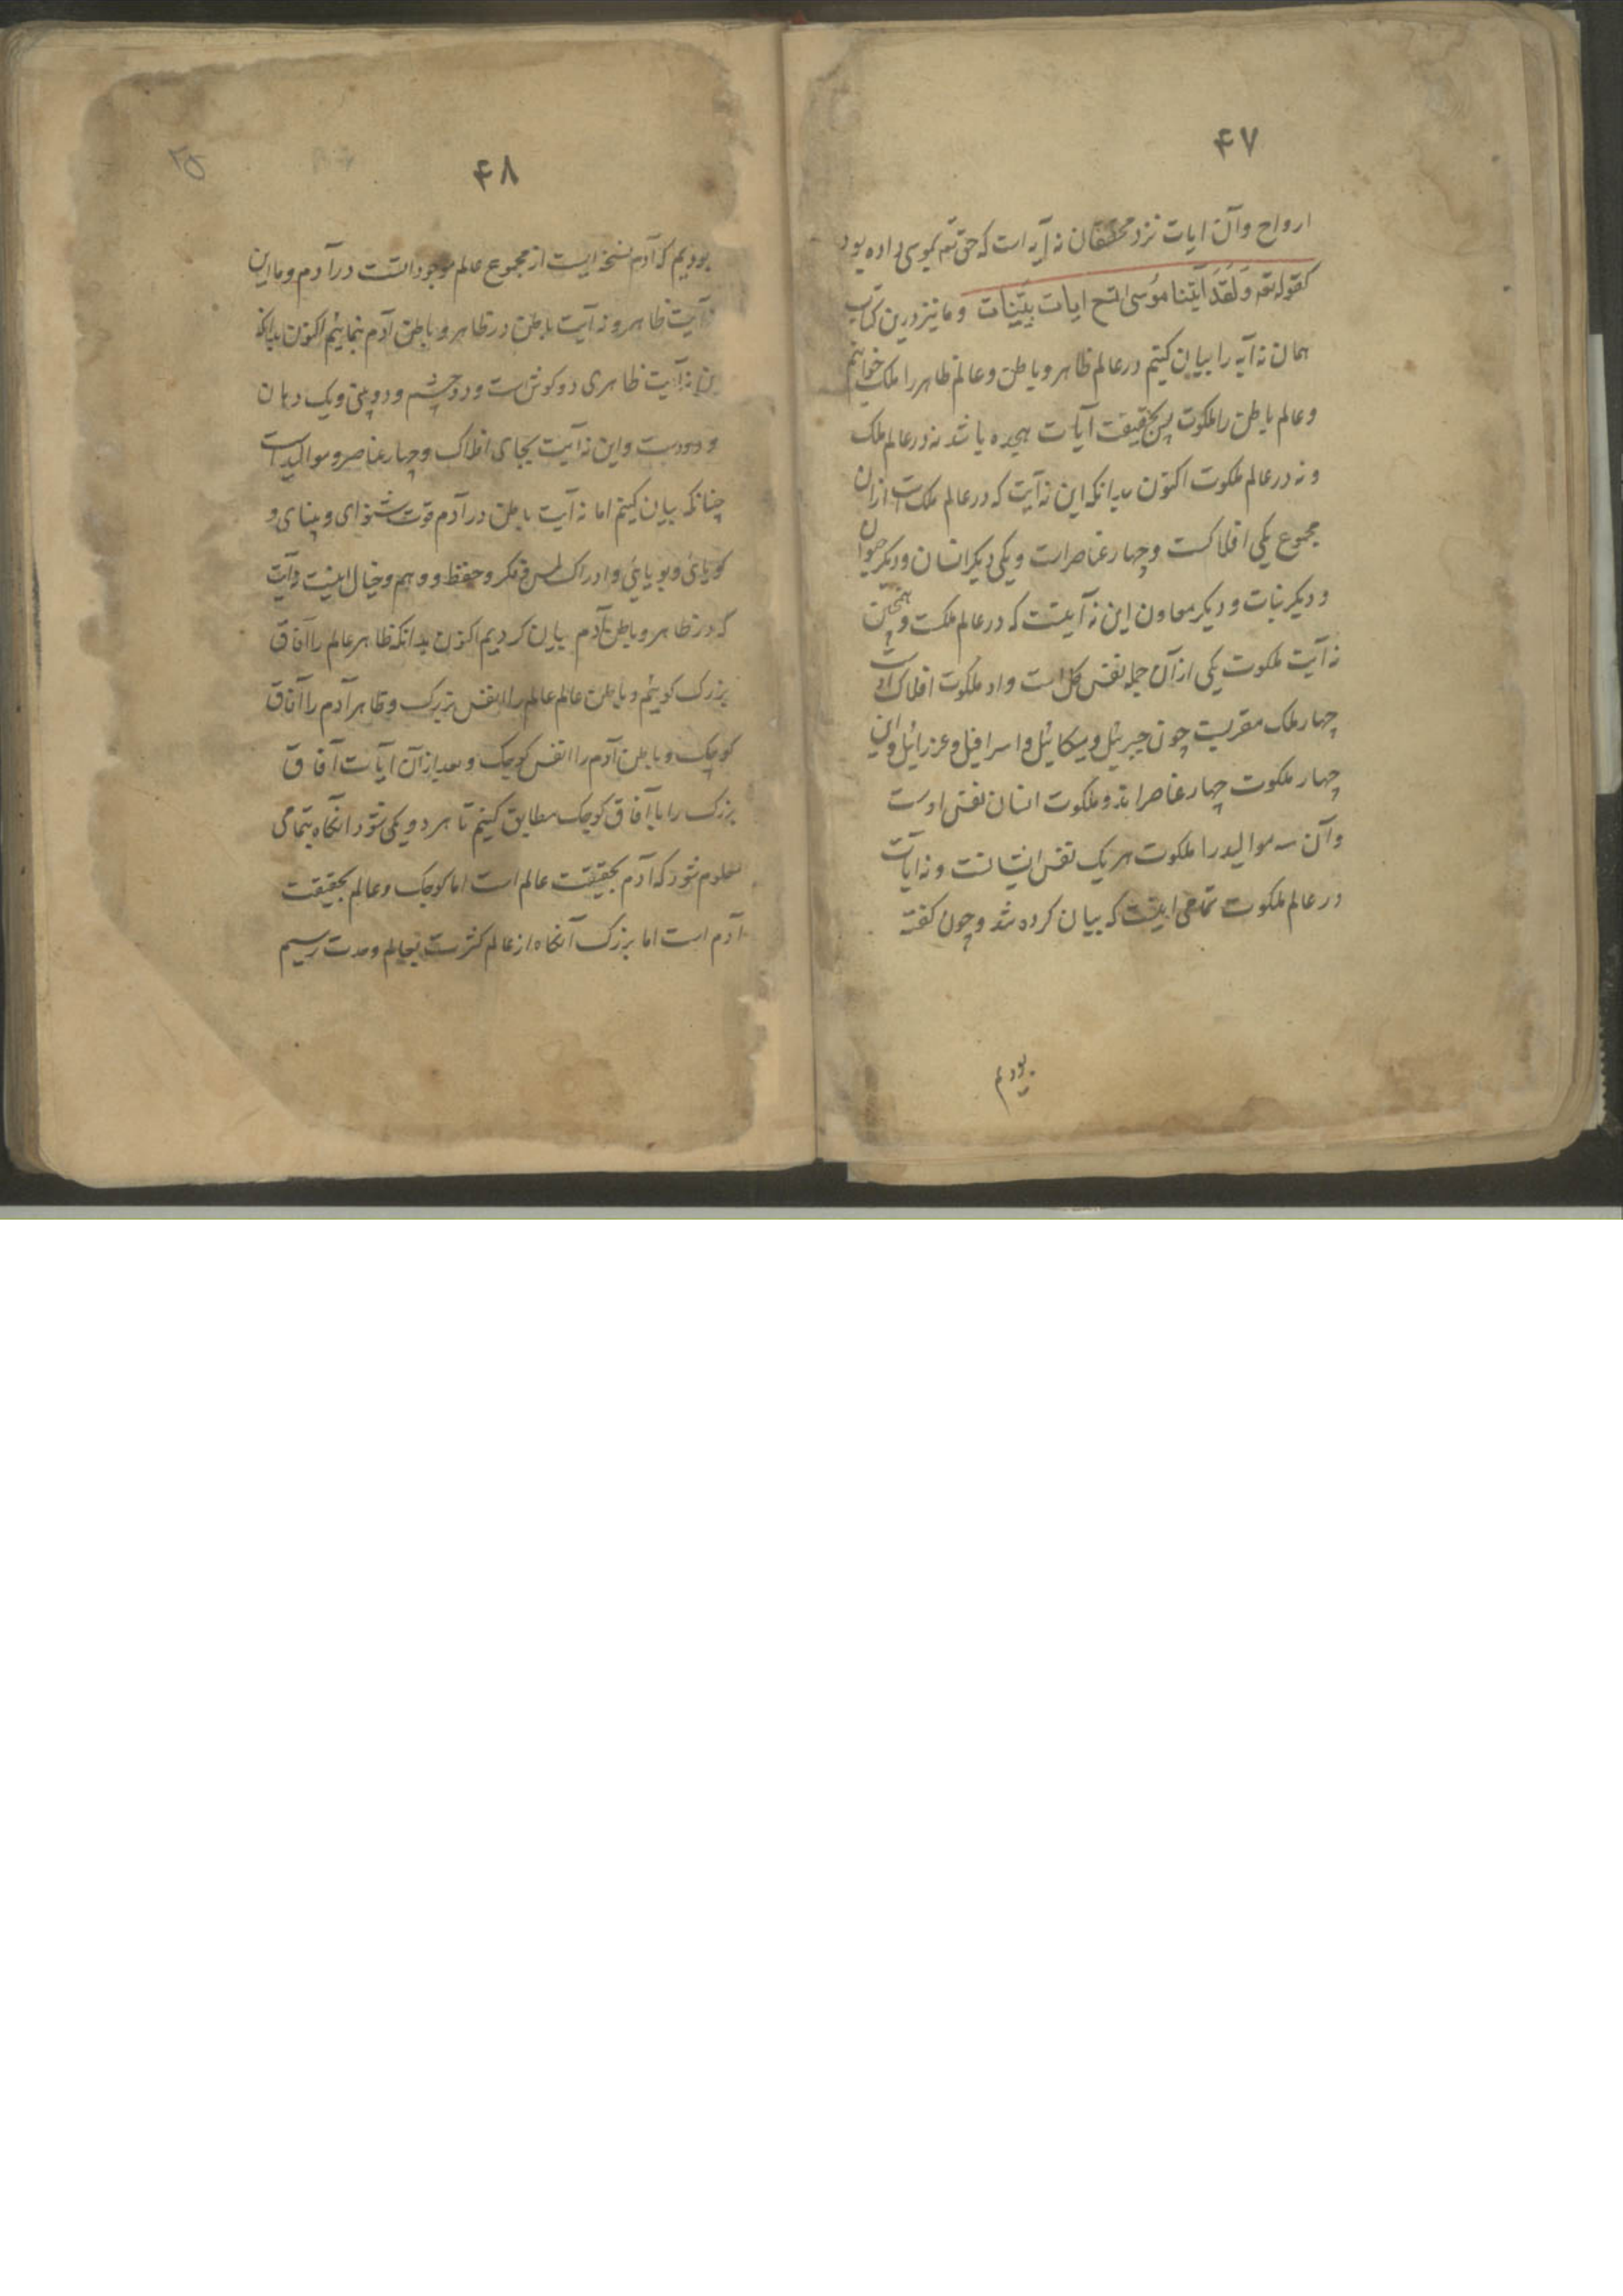 ۴۷
ارواح وآن ایات نزد محققان نه آیه است که حق تعه بموسی داده بود
کقوله تعه وَلَقَدْ اٰتَینا مُوسیٰ تسع ایات بَیِّنات وما نیز درین کتاب
همان نه آیه را بیان کنیم در عالم ظاهر وباطن وعالم ظاهر را ملک خوانیم
وعالم باطن را ملکوت پس بحقیقت آیات هجده باشد نه در عالم ملک
ونه در عالم ملکوت اکنون بدانکه این نه آیت که در عالم ملک است ازان
مجموع یکی افلاکست وچهار عناصر است ویکی دیکر انسان ودیکر حیوان
ودیکر نبات ودیکر معاون این نه آیتست که در عالم ملکست وهمچنین
نه آیت ملکوت یکی از آن جمله نفس کل است واو ملکوت افلاک است
چهار ملک مقربست چون جبرئیل ومیکائیل واسرافیل وعزرائیل واین
چهار ملکوت چهار عناصر اند وملکوت انسان نفس اوست
وآن سه موالید را ملکوت هر یک نفس ایشانست ونه ایات
در عالم ملکوت تمامی اینست که بیان کرده شد وچون کفته
بودیم
۴۸
بودیم که آدم نسخه ایست از مجموع عالم موجود است در آدم وما این
نه آیت ظاهر ونه آیت باطن در ظاهر وباطن آدم بنمائیم اکنون بدانکه
این نه آیت ظاهری دو کوش است ودو چشم ودو بینی ویک دهان
ودو دست واین نه آیت بجای افلاک وچهار عناصر وموالید است
چنانکه بیان کنیم اما نه آیت باطن در آدم قوت شنوای وبینای و
کویائی وبویائی وادراک لمس وفکر وحفظ ووهم وخیال اینست نه آیت
که در ظاهر وباطن آدم بیان کردیم اکنون بدانکه ظاهر عالم را آفاق
بزرک کوئیم وباطن عالم عالم را انفس بزرک وظاهر آدم را آفاق
کوچک وباطن آدم را انفس کوچک وبعد از آن آیات آفاق
بزرک را با آفاق کوچک مطابق کنیم تا هر دو یکی شود آنکاه بتمامی
معلوم شود که آدم بحقیقت عالم است اما کوچک وعالم بحقیقت
آدم است اما بزرک آنکاه از عالم کثرت بعالم وحدت رسیم